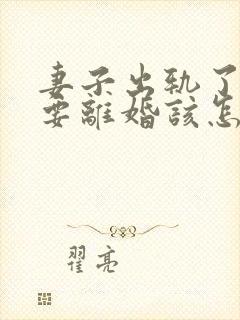 妻子出轨了
要離婚該怎
翟亮